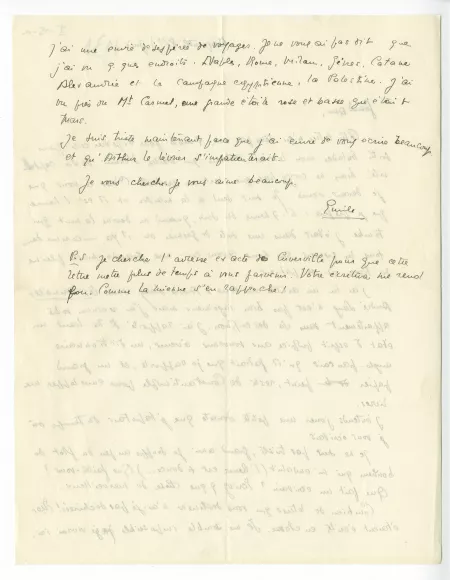 j'ai une envie désespérée de voyages. Je ne vous ai pas dit que
j'ai vu q. ques endroits. Naples, Rome, Milan, Gênes, Catane
Alexandrie et la campagne egyptienne, la Palestine. J'ai
vu près du Mt Carmel, une grande étoile rose et basse qui était
Mars.
Je suis triste maintenant parce que j'ai envie de vous ecrire beaucoup
et qu'Arthur le lévrier s'impatienterait.
Je vous cherche, je vous aime beaucoup.
Emile
P.S. Je cherche l'adresse exacte de Cuverville pour que cette
lettre mette plus de temps à vous parvenir. Votre écriture me rend
fou. Comme la mienne s'en rapproche !